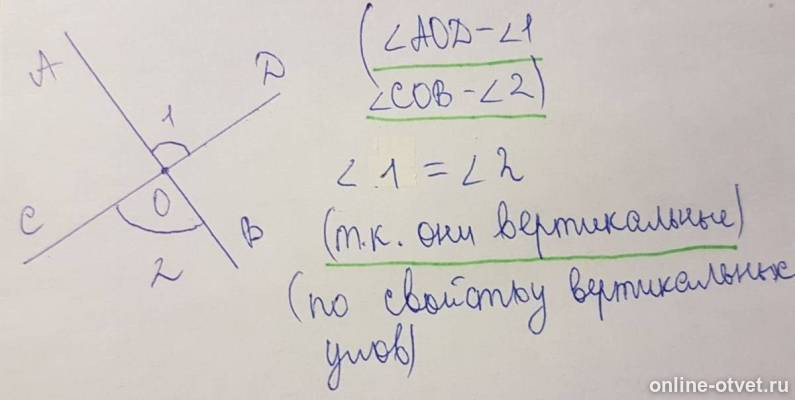 A
D
1
C
O
B
2
(∠AOD-∠1
∠COB-∠2)
∠1=∠2
(т.к. они вертикальные)
(по свойству вертикальных
углов)
online-otvet.ru